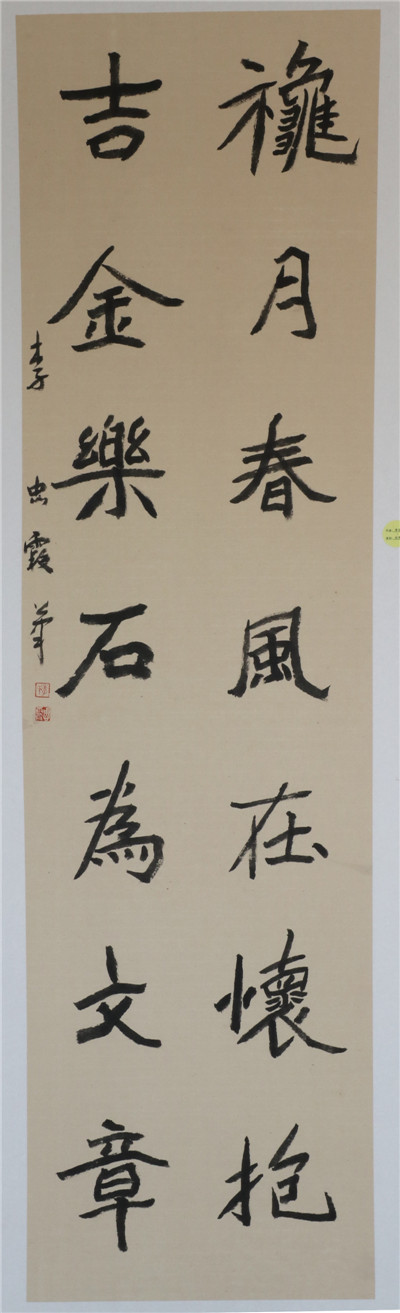 龝月春風在懷抱
吉金樂石為文章
李忠霞筆